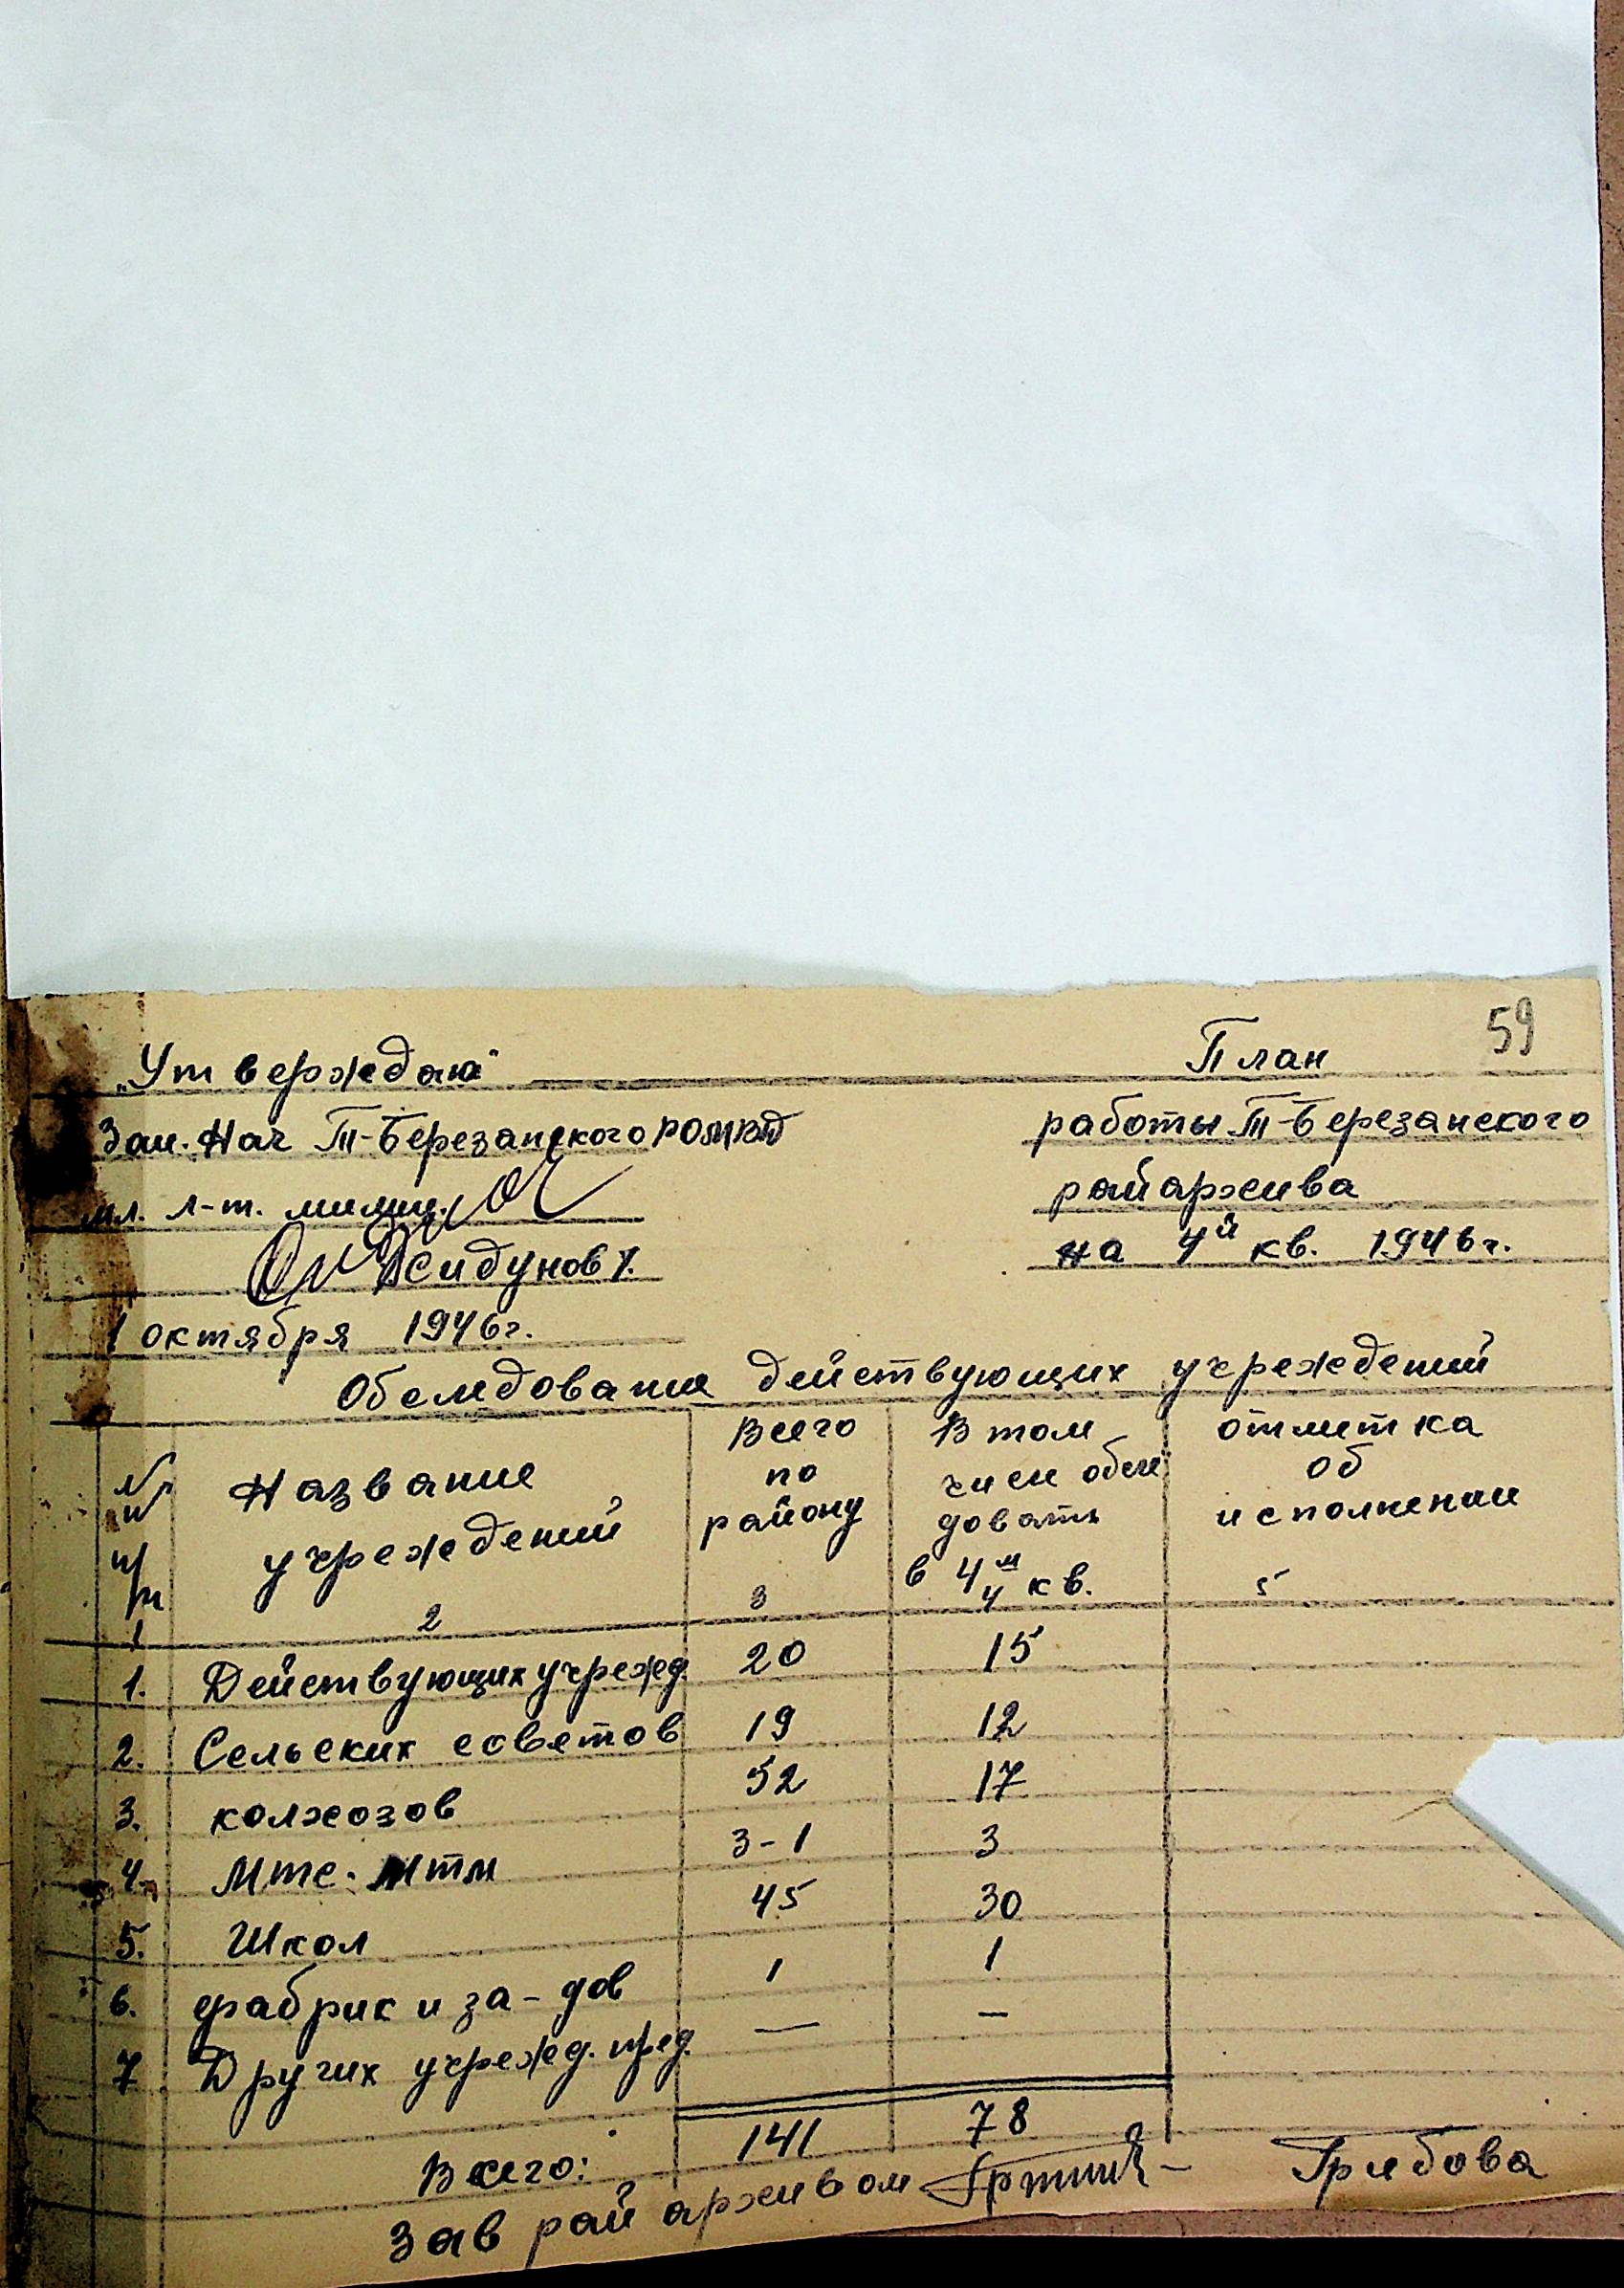 59
„Утверждаю"
Зам. Нач Т-Березанского РОМВД
мл. л-т. милиц.
Сидунов
1 октября 1946г.
План
работы Т-Березанского
райархива
на 4й кв. 1946г.
Обследование действующих учреждений
№№ п/п Название учреждений Всего по району В том числе обсле довать в 4м кв. отметка об исполнении
1 2 3 4 5
1. Действующих учрежд. 20 15
2. Сельских советов 19 12
3. колхозов 52 17
4. Мтс. Мтм 3-1 3
5. Школ 45 30
6. фабрик и за-дов 1 1
7 Других учрежд. пред. — —
Всего: 141 78
Зав рай архивом — Грибова